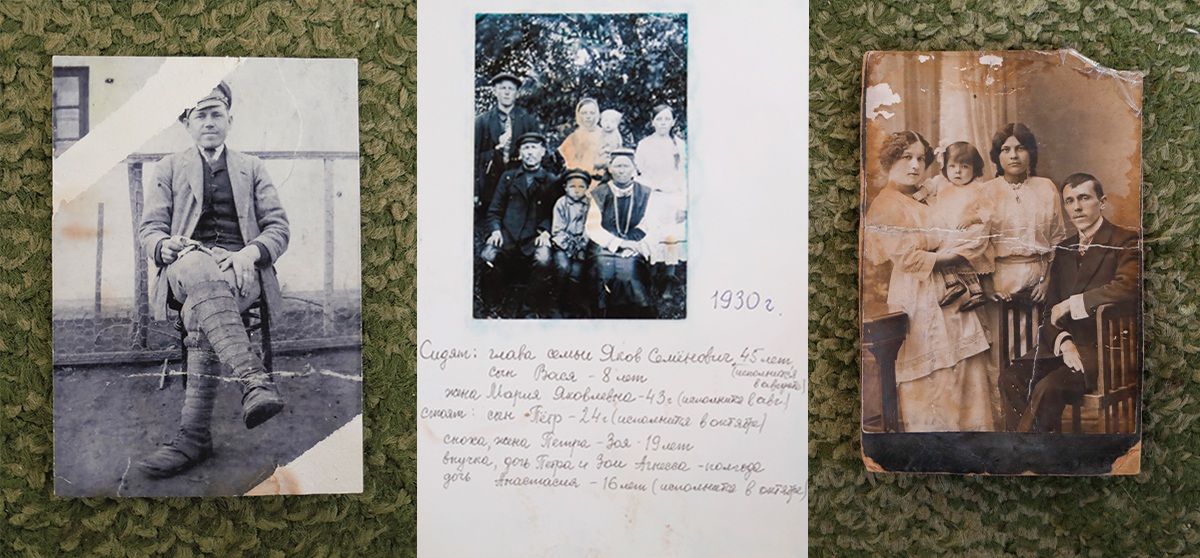 1930 г.
Сидят: глава семьи Яков Семёнович, 45 лет,
(исполнится
в августе)
сын Вася - 8 лет
жена Мария Яковлевна - 43 г (исполнится в авг.)
стоят: сын Пётр - 24 г (исполнится в октябре)
сноха, жена Петра - Зоя - 19 лет
внучка, дочь Петра и Зои Агнесса - полгода
дочь Анастасия - 16 лет (исполнится в октябре)